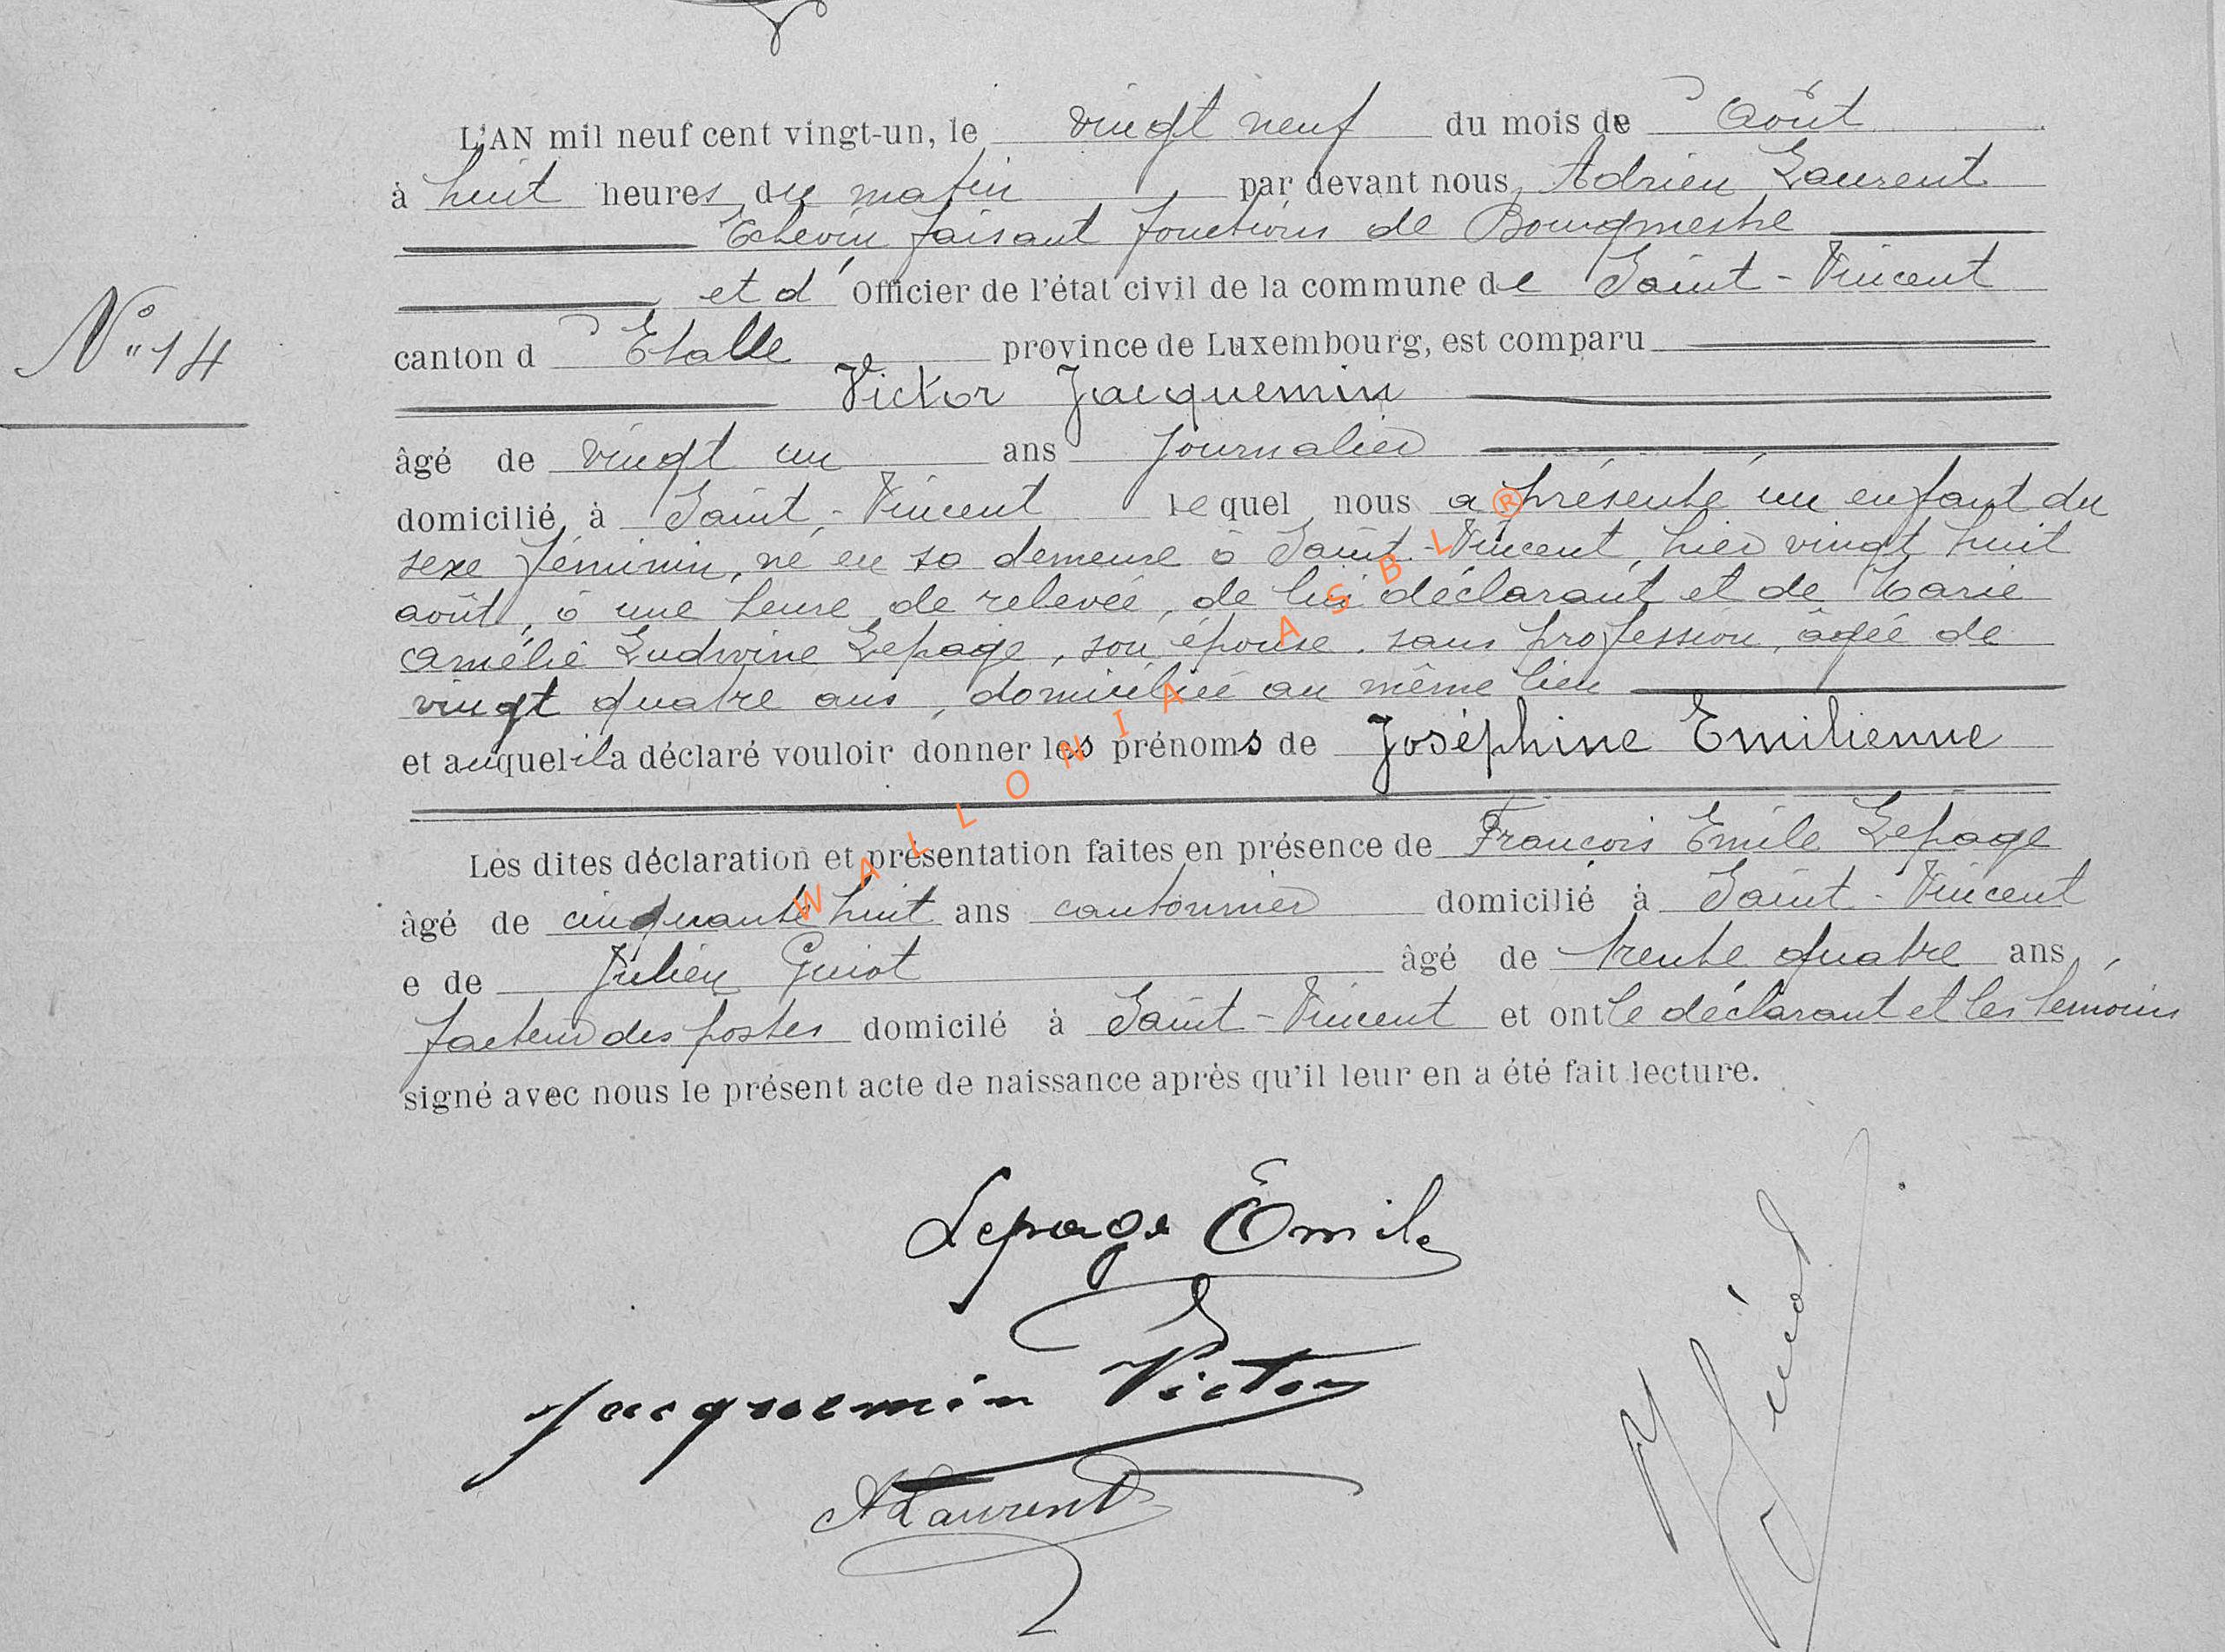 L'AN mil neuf cent vingt-un, le vingt neuf du mois de Août
à huit heures du matin par devant nous, Adrien Laurent
Echevin faisant fonctions de Bourgmestre
et d' Officier de l'état civil de la commune de Saint-Vincent
N° 14
canton d Etalle province de Luxembourg, est comparu
Victor Jacquemin
âgé de vingt un ans Journalier
domicilié à Saint-Vincent lequel nous a présenté un enfant du
sexe féminin, né en sa demeure à Saint-Vincent, hier vingt huit
août, à une heure de relevée, de lui déclarant et de Marie
Amélie Ludwine Lepage, son épouse, sans profession, âgée de
vingt quatre ans, domiciliée au même lieu
et auquel il a déclaré vouloir donner les prénoms de Joséphine Emilienne
Les dites déclaration et présentation faites en présence de François Emile Lepage
âgé de cinquante huit ans cantonnier domicilié à Saint-Vincent
e de Julien Guiot âgé de trente quatre ans,
facteur des postes domicilé à Saint-Vincent et ont le déclarant et les témoins
signé avec nous le présent acte de naissance après qu'il leur en a été fait lecture.
Lepage Emile
Jacquemin Victor
ALaurent
WALLONIA ASBL ®